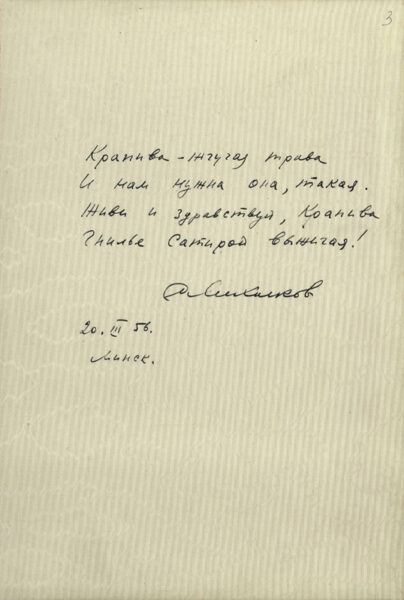 3
Крапива – жгучая трава
И нам нужна она, такая.
Живи и здравствуй, Крапива
Гнилье Сатирой выжигая!
С. Михалков
20. III 56.
Минск.